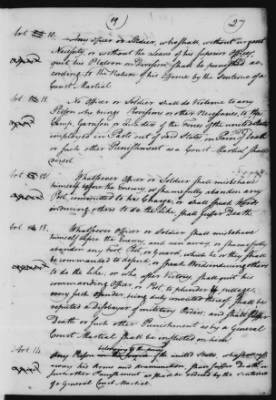 (19)
27
Art. 10. Any officer or Soldier, who shall, without urgent
Necessity, or without the Leave of his superior Officer,
quit his Platoon or Division, shall be punished ac-
cording to the Nature of his Offence by the Sentence of a
Court Martial
Art. 11. No officer or Soldier shall do Violence to any
Person who brings Provisions or other Necessaries, to the
Camp, Garrison or Quarters of the Forces of the united States
employed in Parts out of said States, on Pain of Death
or such other Punishment as a Court Martial shall
direct
Art. 12. Whatsoever officer or Soldier shall misbehave
himself before the Enemy, or shamefully abandon any
Post committed to his Charge, or shall speak Words
inducing others to do the like, shall suffer Death
Art. 13. Whatsoever officer or Soldier shall misbehave
himself before the Enemy, and run away, or shamefully
abandon any Fort, Post, or guard, which he or they shall
be commanded to defend, or speak Words inducing others
to do the like, or who after Victory, shall quit his
commanding officer, or Post, to plunder & pillage,
every such offender, being duly convicted thereof, shall be
reputed a disobeyer of military Orders; and shall suffer
Death or such other Punishment as by a General
Court Martial shall be inflicted on him
Art. 14
Any Person belonging to the Forces of the united States, who shall cast
away his Arms and Ammunition, shall suffer Death or
such other Punishment as shall be ordered by the Sentence
of a General Court Martial